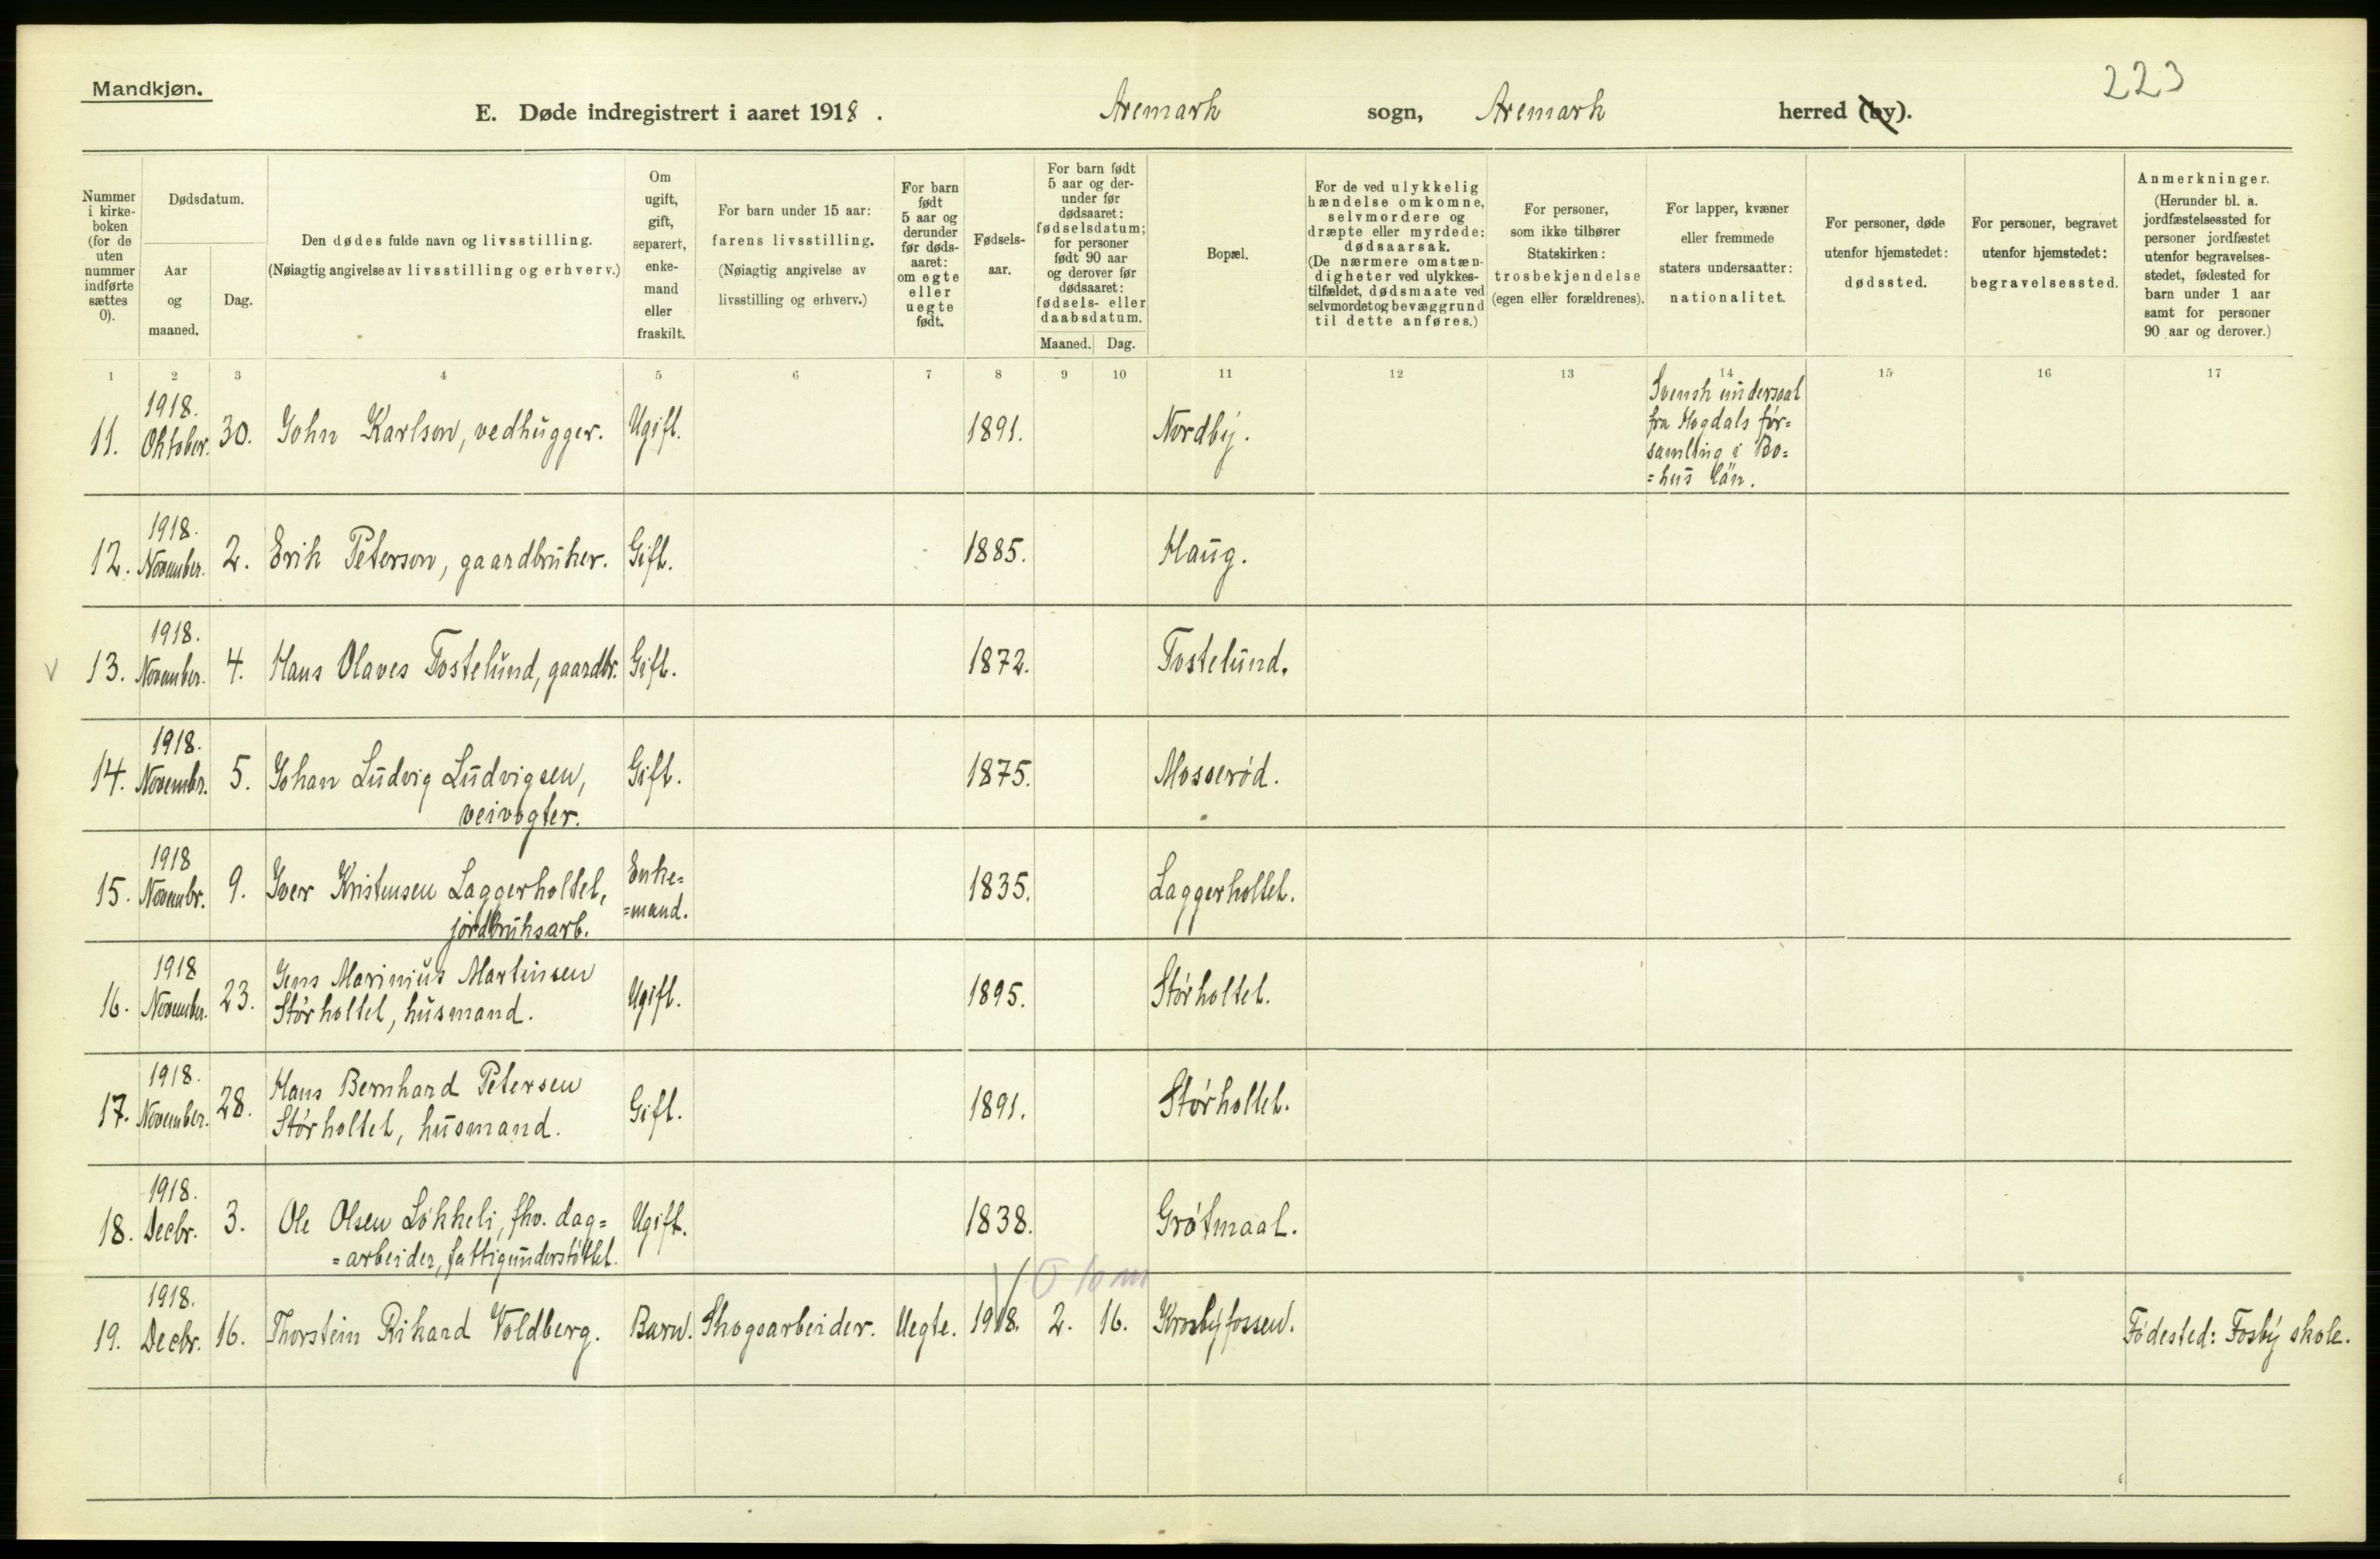 Mandkjøn.
223
E. Døde indregistrert i aaret 1918. Aremark sogn, Aremark herred (by).
Nummer i kirke- boken (for de uten nummer indførte sættes 0).
Dødsdatum.
Aar og maaned.
Dag.
Den dødes fulde navn og livsstilling.
(Nøiagtig angivelse av livsstilling og erhverv.)
Om ugift, gift, separert, enke- mand eller fraskilt.
For barn under 15 aar:
farens livsstilling.
(Nøiagtig angivelse av
livsstilling og erhverv.)
For barn født 5 aar og derunder før døds- aaret: om egte eller uegte født.
Fødsels- aar.
For barn født 5 aar og der- under før dødsaaret: fødselsdatum; for personer født 90 aar og derover før dødsaaret: fødsels- eller daabsdatum.
Maaned. Dag.
Bopæl.
For de ved ulykkelig hændelse omkomne, selvmordere og dræpte eller myrdede: dødsaarsak. (De nærmere omstæn- digheter ved ulykkes- tilfældet, dødsmaate ved selvmordet og bevæggrund til dette anføres.)
For personer, som ikke tilhører Statskirken: trosbekjendelse (egen eller forældrenes).
For lapper, kvæner eller fremmede staters undersaatter: nationalitet.
For personer, døde utenfor hjemstedet: dødssted.
For personer, begravet utenfor hjemstedet: begravelsessted.
Anmerkninger. (Herunder bl. a. jordfæstelsessted for personer jordfæstet utenfor begravelses- stedet, fødested for barn under 1 aar samt for personer 90 aar og derover.)
1 2 3 4 5 6 7 8 9 10 11 12 13 14 15 16 17
11. 1918. Oktober. 30. John Karlson, vedhugger. Ugift. 1891. Nordby. Svensk undersaat
fra Hogdals för=
samling i Bo=
=hus län.
12. 1918. November. 2. Erik Peterson, gaardbruker. Gift. 1885. Haug.
V 13. 1918. November. 4. Hans Olaves Tostelund, gaardbr. Gift. 1872. Tostelund.
14. 1918. Novembr. 5. Johan Ludvig Ludvigsen, Gift. 1875. Mosserød.
veivogter.
15. 1918 Novembr. 9. Iver Kristensen Laggerholtet, Enke= 1835. Laggerholtet.
jordbruksarb. =mand.
16. 1918 November. 23. Jens Marinius Martinsen
Störholtet, husmand. Ugift. 1895. Störholtet.
17. 1918. November. 28. Hans Bernhard Petersen
Störholtet, husmand. Gift. 1891. Störholtet.
18. 1918. Decbr. 3. Ole Olsen Lökkeli, fhv. dag= Ugift. 1838. Grötmaal.
=arbeider, fattigunderstöttet.
10 m
19. 1918. Decbr. 16. Thorstein Rikard Voldberg. Barn. Skogsarbeider. Uegte. 1918. 2. 16. Krosbyfossen. Födested: Fosby skole.